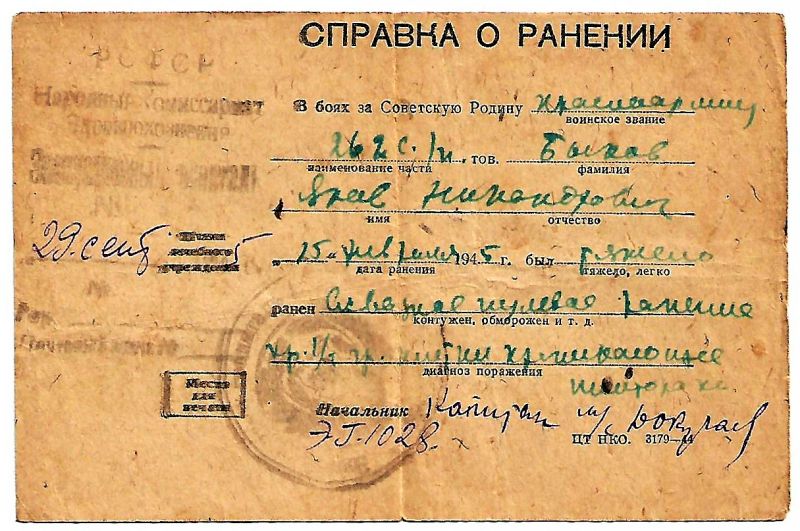 СПРАВКА О РАНЕНИИ
РСФСР
Народный Комиссариат
Здравоохранения
В боях за Советскую Родину красноармеец
воинское звание
262 с./п. тов. Быков
наименование части фамилия
Яков Никандрович
имя отчество
29 сент 5
Штамп
лечебного
учреждения
"15" февраля 1945 г. был тяжело
дата ранения тяжело, легко
ранен Слепное пулевое ранение
контужен, обморожен и т. д.
гр. клетки проникающее
диагноз поражения
Место
для
печати
Начальник Капитан м/с
ЭГ-1028.
ЦТ НКО. 3179—44